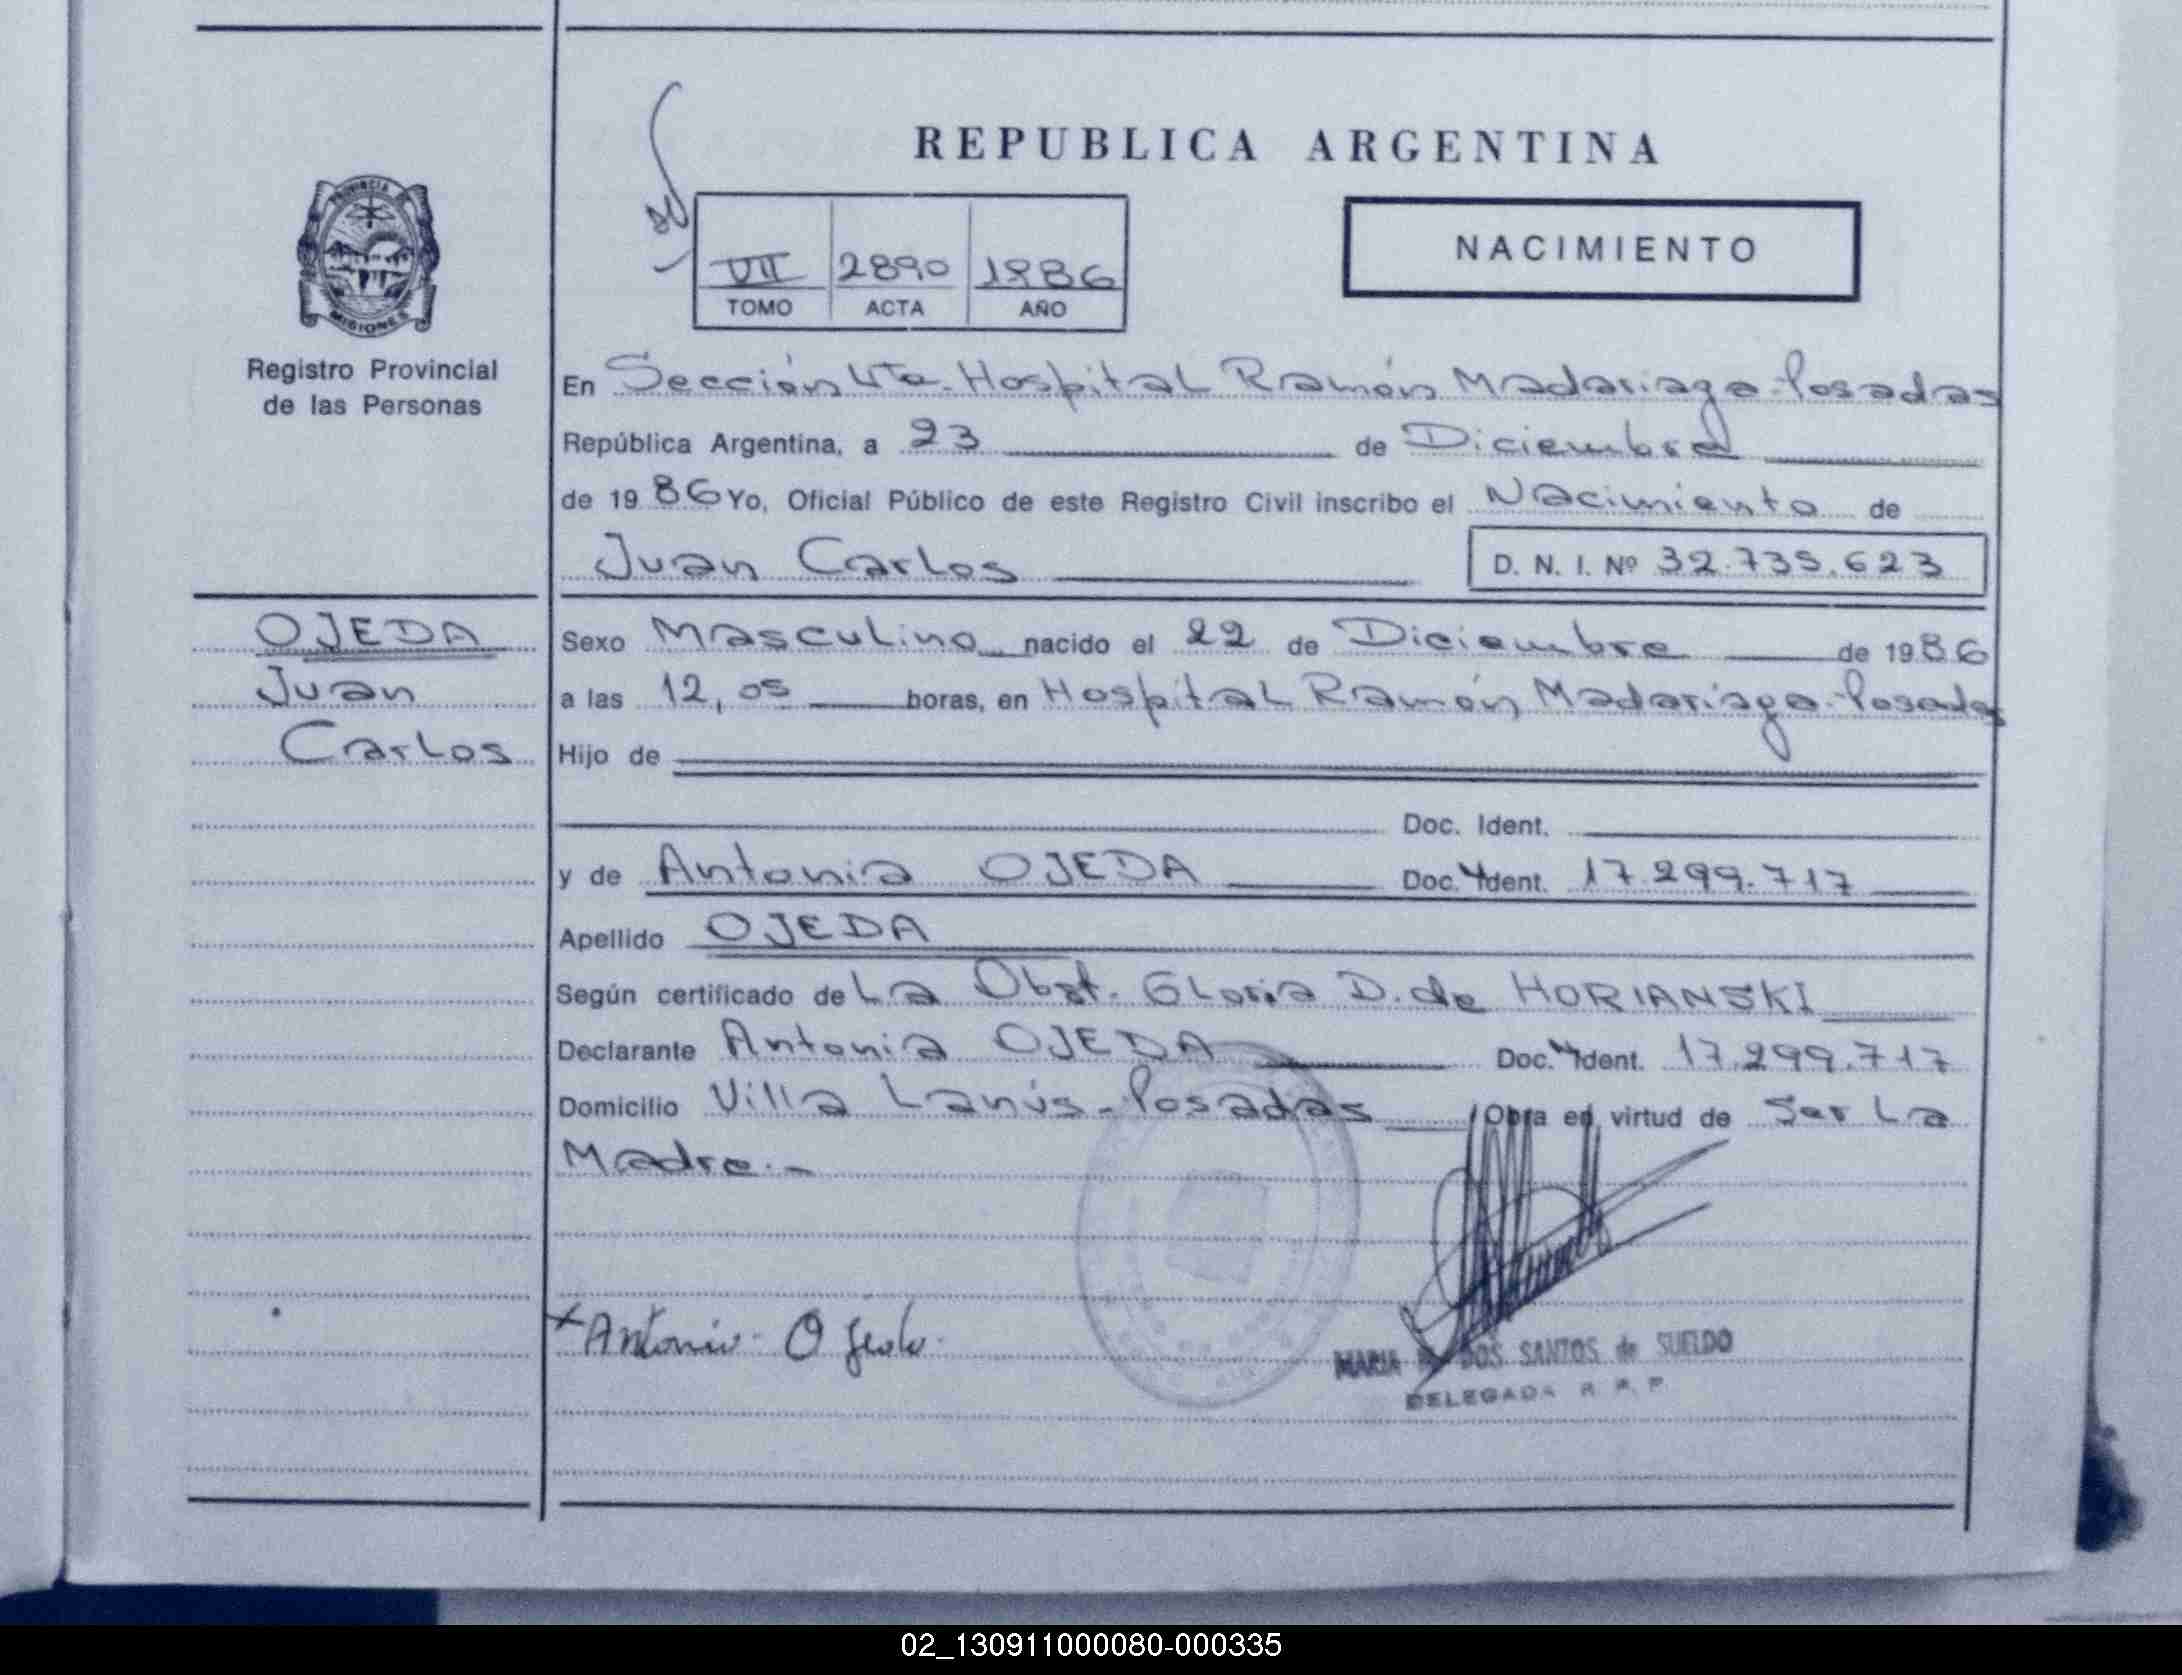 REPUBLICA ARGENTINA
PROVINCIA DE
MISIONES
Registro Provincial
de las Personas
VII 2890 1986
TOMO ACTA AÑO
NACIMIENTO
En Sección 4ta. Hospital Ramón Madariaga - Posadas
República Argentina, a 23 de Diciembre
de 1986 Yo, Oficial Público de este Registro Civil inscribo el Nacimiento de
Juan Carlos D. N. I. Nº 32.735.623
OJEDA
Juan
Carlos
Sexo Masculino nacido el 22 de Diciembre de 1986
a las 12,05 horas, en Hospital Ramón Madariaga - Posadas
Hijo de
Doc. Ident.
y de Antonia OJEDA Doc. Ident. 17.299.717
Apellido OJEDA
Según certificado de La Obst. Gloria D. de HORIANSKI
Declarante Antonia OJEDA Doc. Ident. 17.299.717
Domicilio Villa Lanús - Posadas Obra en virtud de Ser La
Madre.-
Antonia Ojeda
MARIA DOS SANTOS de SUELDO
DELEGADA R. P. P.
02_130911000080-000335